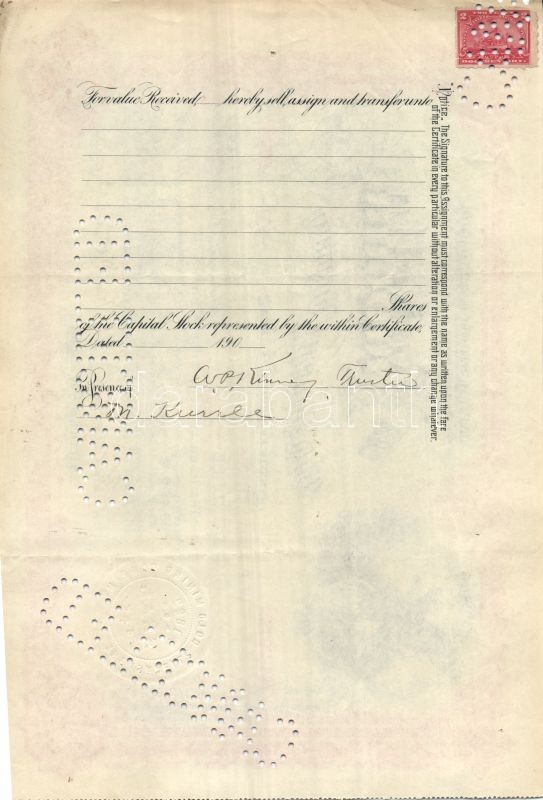 For value Received, hereby sell, assign and transfer unto
Shares
of the Capital Stock represented by the within Certificate,
Dated 190
In Presence of
Trustee
M.
Notice. The Signature to this Assignment must correspond with the name as written upon the face
of the Certificate in every particular without alteration or enlargement or any change whatever.
2
DOCUMENTARY